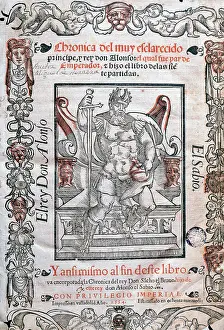 Chronica del muy esclarecido
principe, y rey don Alonso: el qual fue par de
Emperador, & hizo el libro delas siete
te partidas.
El rey Dō Alonso
El Sabio.
Y ansi mismo al fin deste libro
va encorporada la Chronica del rey Don
rey don Alonso el Sabio
CON PRIVILEGIO IMPERIAL